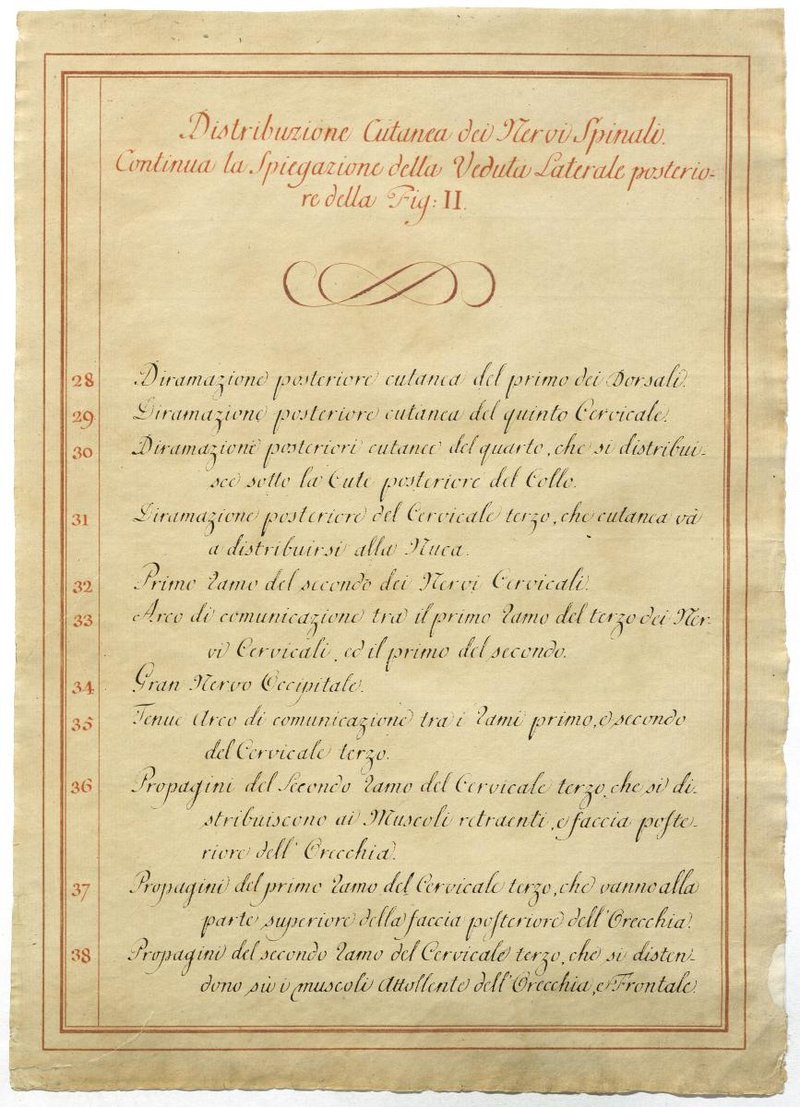 Distribuzione Cutanea dei Nervi Spinali.
Continua la Spiegazione della Veduta Laterale posterio-
re della Fig: II.
28 Diramazione posteriore cutanea del primo dei Dorsali.
29 Diramazione posteriore cutanea del quinto Cervicale.
30 Diramazioni posteriori cutanee del quarto, che si distribui-
sce sotto la Cute posteriore del Collo.
31 Diramazione posteriore del Cervicale terzo, che cutanea và
a distribuirsi alla Nuca.
32 Primo Ramo del secondo dei Nervi Cervicali.
33 Arco di comunicazione tra il primo Ramo del terzo dei Ner-
vi Cervicali, ed il primo del secondo.
34 Gran Nervo Occipitale.
35 Tenue Arco di comunicazione tra i Rami primo, e secondo
del Cervicale terzo.
36 Propagini del Secondo Ramo del Cervicale terzo, che si di-
stribuiscono ai Muscoli retraenti, e faccia poste-
riore dell' Orecchia.
37 Propagini del primo Ramo del Cervicale terzo, che vanno alla
parte superiore della faccia posteriore dell' Orecchia.
38 Propagini del secondo Ramo del Cervicale terzo, che si disten-
dono sù i muscoli Attollente dell' Orecchia, e Frontale.